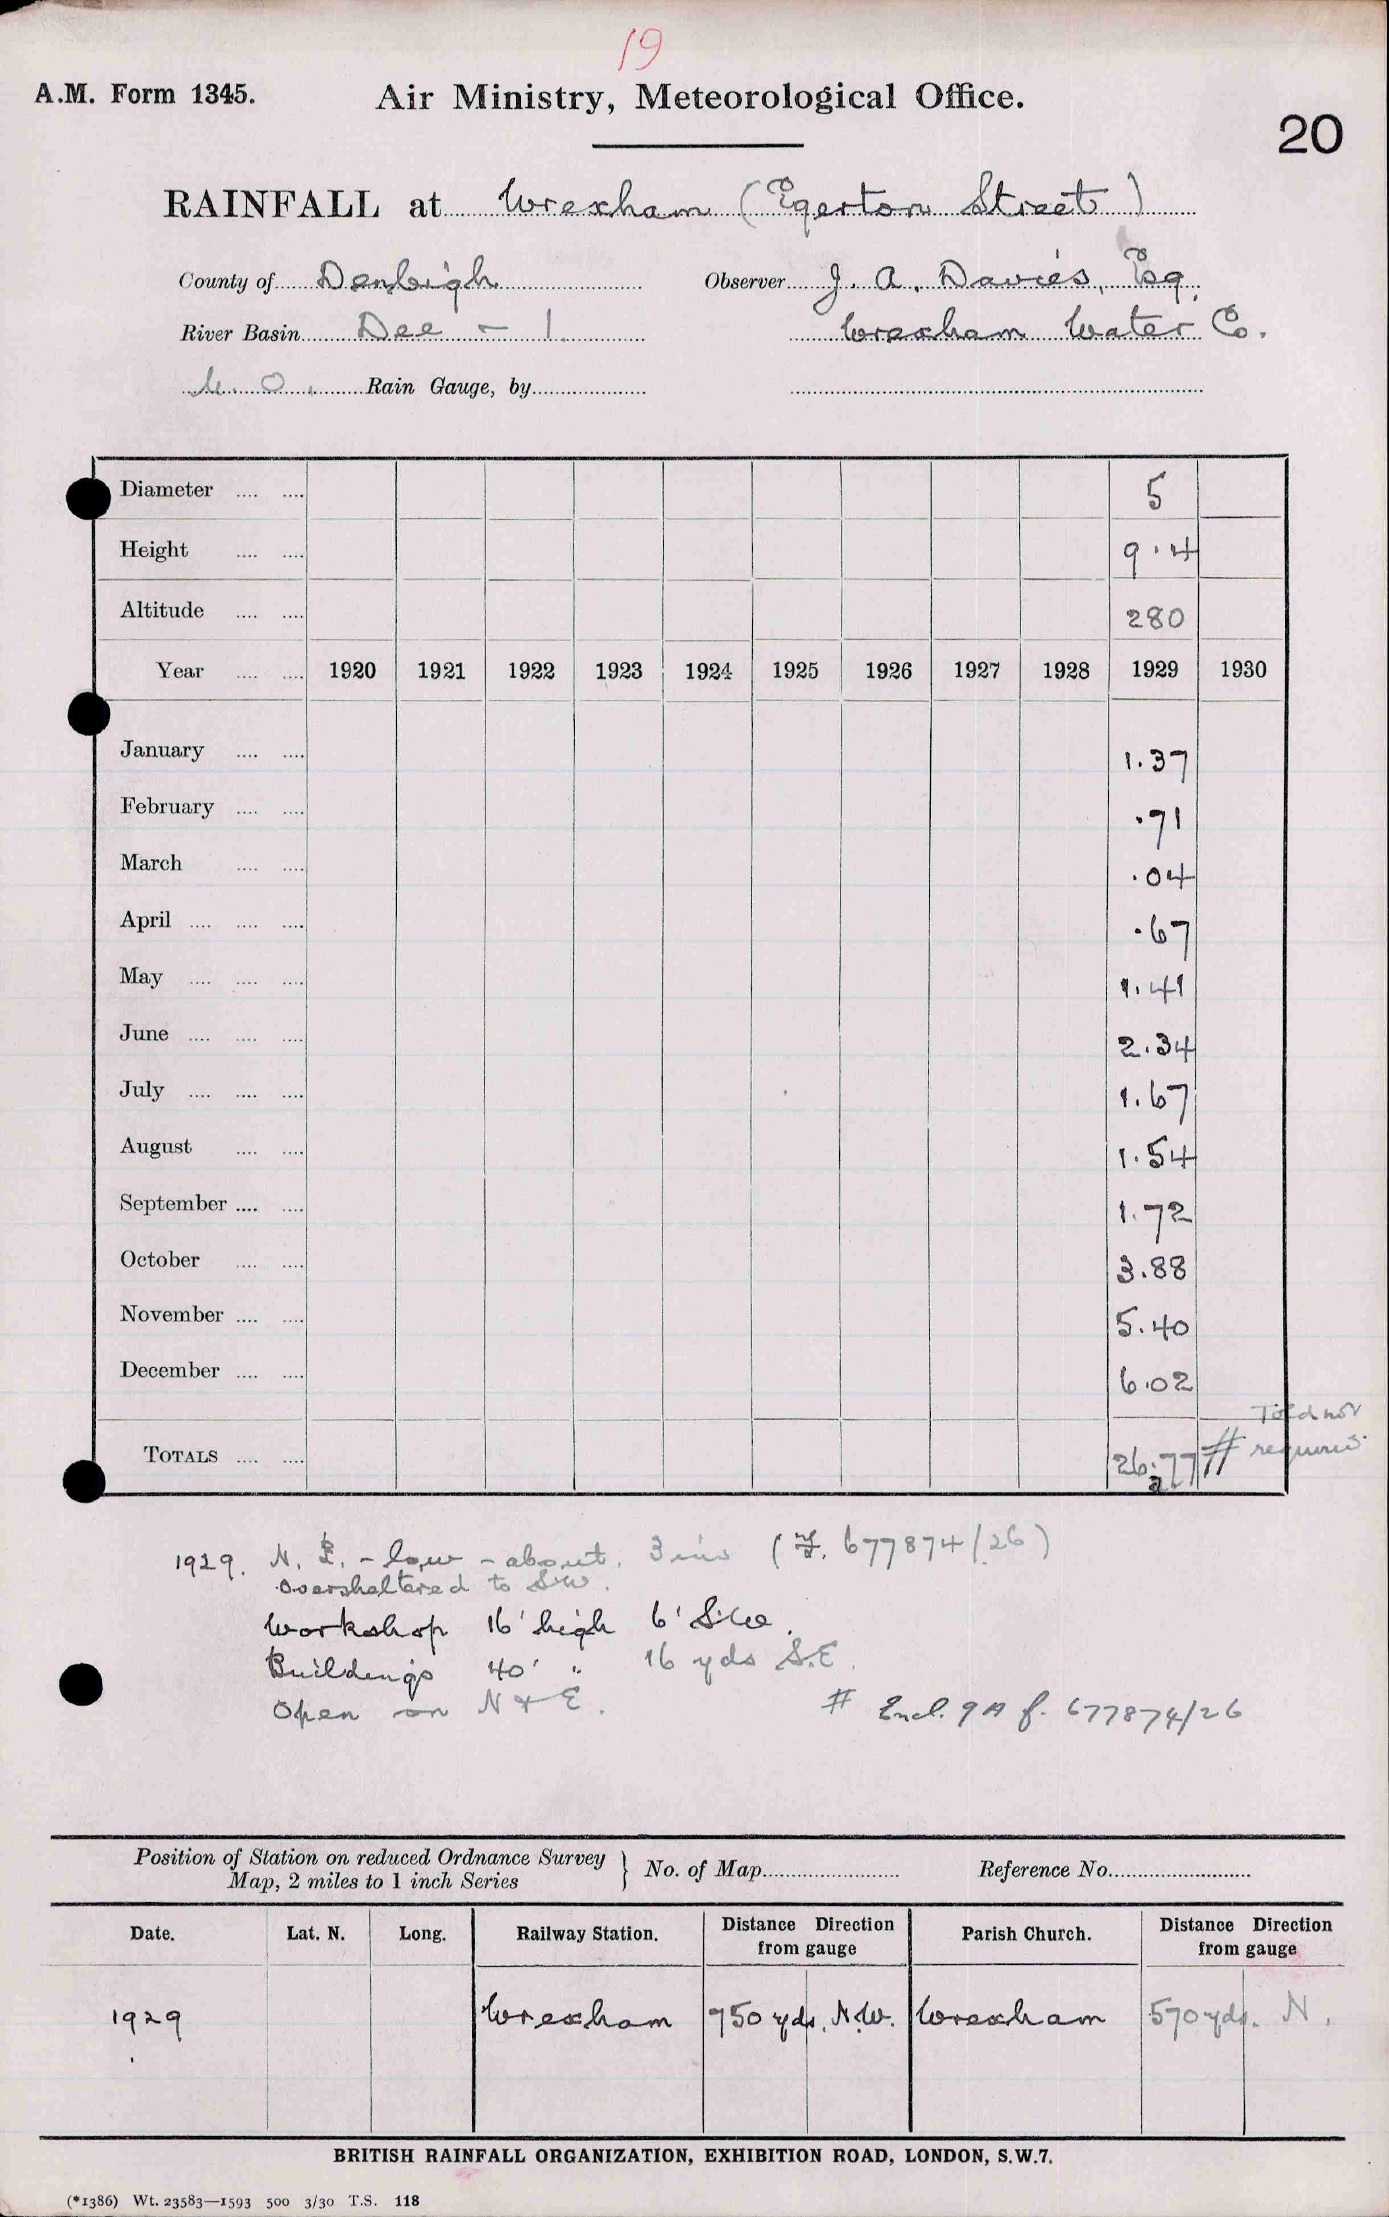 19
A.M. Form 1345.
Air Ministry, Meteorological Office.
20
RAINFALL at Wrexham (Egerton Street)
County of Denbigh Observer J. A. Davies, Esq
River Basin Dee - 1. Wrexham Water Co.
M. O. Rain Gauge, by
Diameter .... .... 5
Height .... .... 9.4
Altitude .... .... 280
Year .... .... 1920 1921 1922 1923 1924 1925 1926 1927 1928 1929 1930
January .... .... 1.37
February .... .... .71
March .... .... .04
April .... .... .... .67
May .... .... .... 1.41
June .... .... .... 2.34
July .... .... .... 1.67
August .... .... 1.54
September .... .... 1.72
October .... .... 3.88
November .... .... 5.40
December .... .... 6.02
Told not
TOTALS .... .... 26.77 # required
a
1929. N. P. - low - about. 3 ins (F. 677874/26)
Oversheltered to SW.
Workshop 16' high 6' S.W.
Buildings 40' " 16 yds S.E.
Open on N & E. # Encl. 9A f. 677874/26
Position of Station on reduced Ordnance Survey
Map, 2 miles to 1 inch Series } No. of Map Reference No.
Date. Lat. N. Long. Railway Station. Distance Direction from gauge Parish Church. Distance Direction from gauge
1929 Wrexham 750 yds. N.W. Wrexham 570 yds. N.
BRITISH RAINFALL ORGANIZATION, EXHIBITION ROAD, LONDON, S.W.7.
(*1386) Wt. 23583—1593 500 3/30 T.S. 118